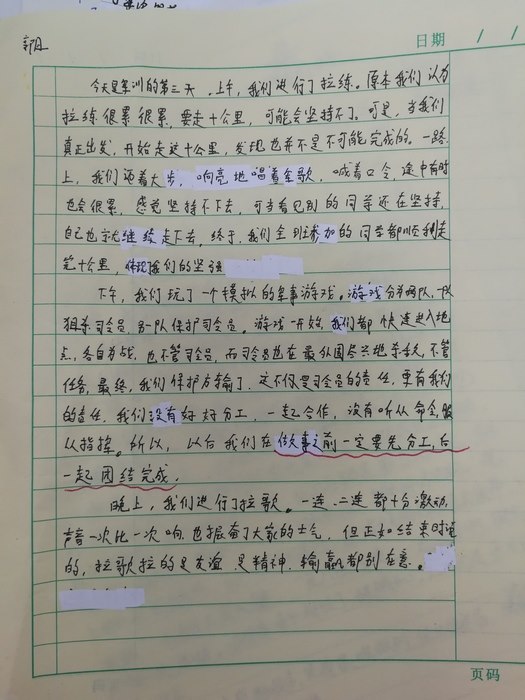 日期 / /
今天是军训的第三天，上午，我们进行了拉练。原本我们认为
拉练很累很累，要走十公里，可能会坚持不了。可是，当我们
真正出发，开始走这十公里，发现也并不是不可能完成的。一路
上，我们迈着大步，响亮地唱着军歌，喊着口令，途中有时
也会很累，感觉坚持不下去，可当看见别的同学还在坚持，
自己也就继续走下去，终于，我们全班参加的同学都顺利走
完十公里，体现我们的坚强
下午，我们玩了一个模拟的军事游戏，游戏分为两队，一队
狙杀司令员，另一队保护司令员。游戏一开始，我们都快速进入地
点，各自为战，也不管司令员，而司令员也在最外围尽兴地杀敌，不管
任务，最终，我们保护方输了，这不仅是司令员的责任，更有我们
的责任，我们没有好好分工，一起合作，没有听从命令，服
从指挥。所以，以后我们在做事之前一定要先分工，后
一起团结完成。
晚上，我们进行了拉歌。一连、二连都十分激动，
声音一次比一次响，也振奋了大家的士气，但正如结束时说
的，拉歌拉的是友谊，是精神，输赢都别在意。
页码